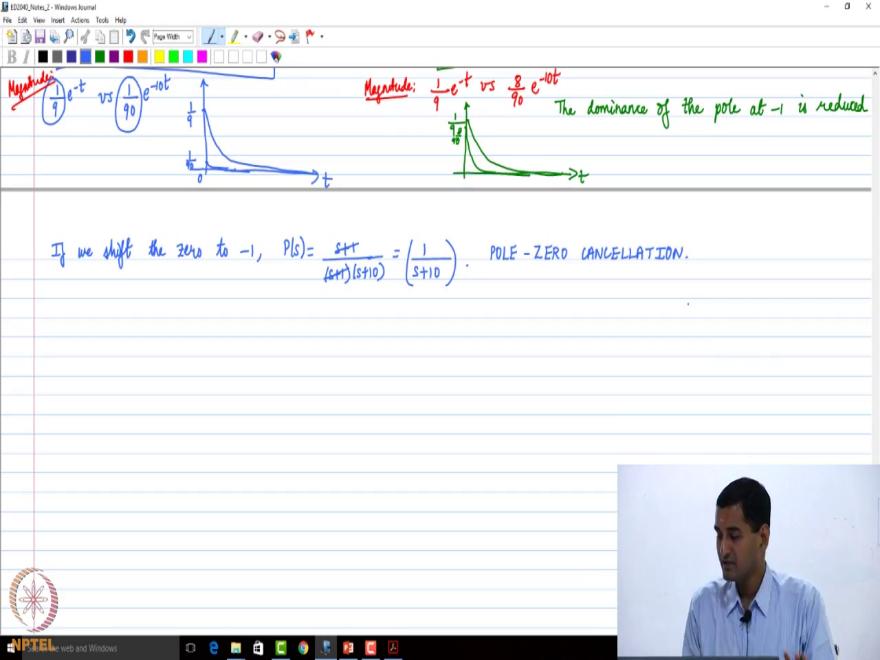 ED2040_Notes_2 - Windows Journal
File Edit View Insert Actions Tools Help
Page Width
B I
Magnitude: 1/9 e^-t vs 1/90 e^-10t
1/9
1/90
0
t
Magnitude: 1/9 e^-t vs 8/90 e^-10t
The dominance of the pole at -1 is reduced
1/9
8/90
t
If we shift the zero to -1, P(s) = s+1/(s+1)(s+10) = (1/s+10). POLE-ZERO CANCELLATION.
NPTEL
the web and Windows